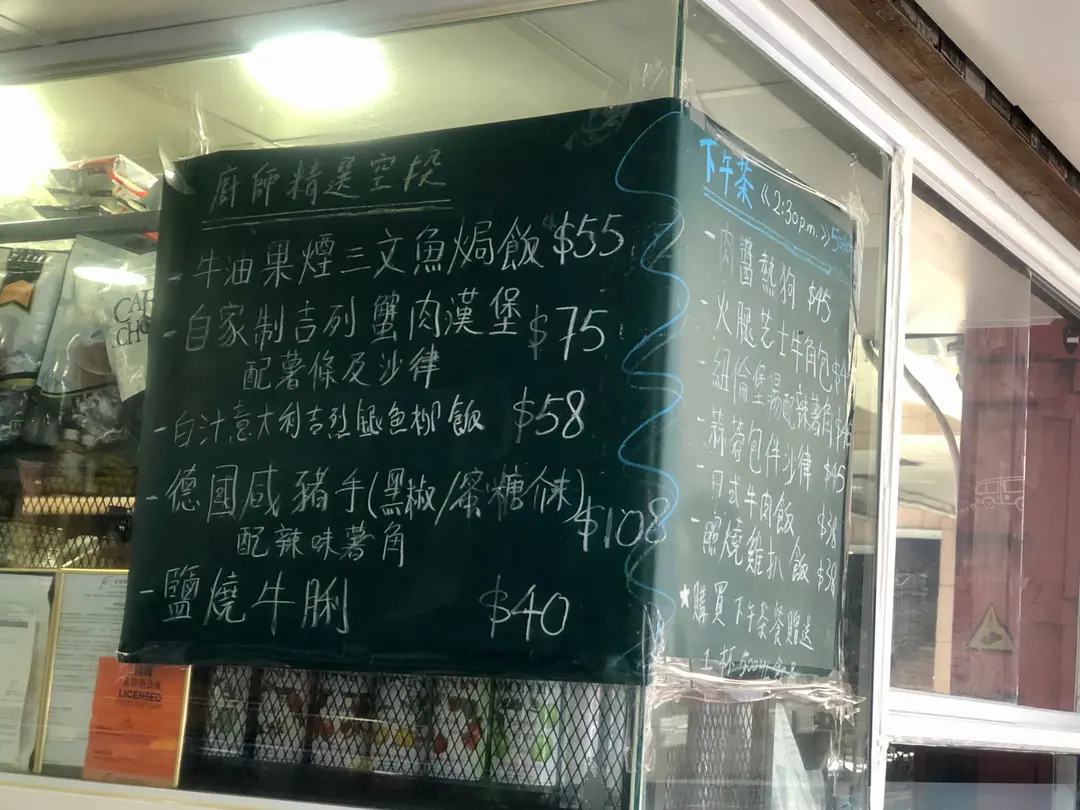 廚師精選空投
- 牛油果煙三文魚焗飯 $55
- 自家制吉列蟹肉漢堡 $75
配薯條及沙律
- 白汁意大利吉烈魚柳飯 $58
- 德國咸豬手(黑椒/蜜糖味) $108
配辣味薯角
- 鹽燒牛脷 $40
下午茶 <<2:30p.m.>>
- 肉醬熱狗 $45
- 火腿芝士牛角包
- 紐倫堡腸配辣薯角 $45
- 蒜蓉包件沙律 $45
- 日式牛肉飯 $38
- 照燒雞扒飯 $38
★購買下午茶餐贈送
1杯500ml
LICENSED